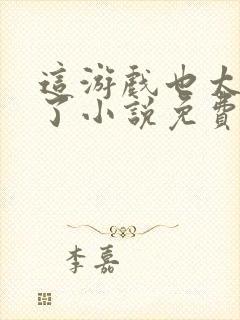 這游戲也太
了小說免費
李嘉